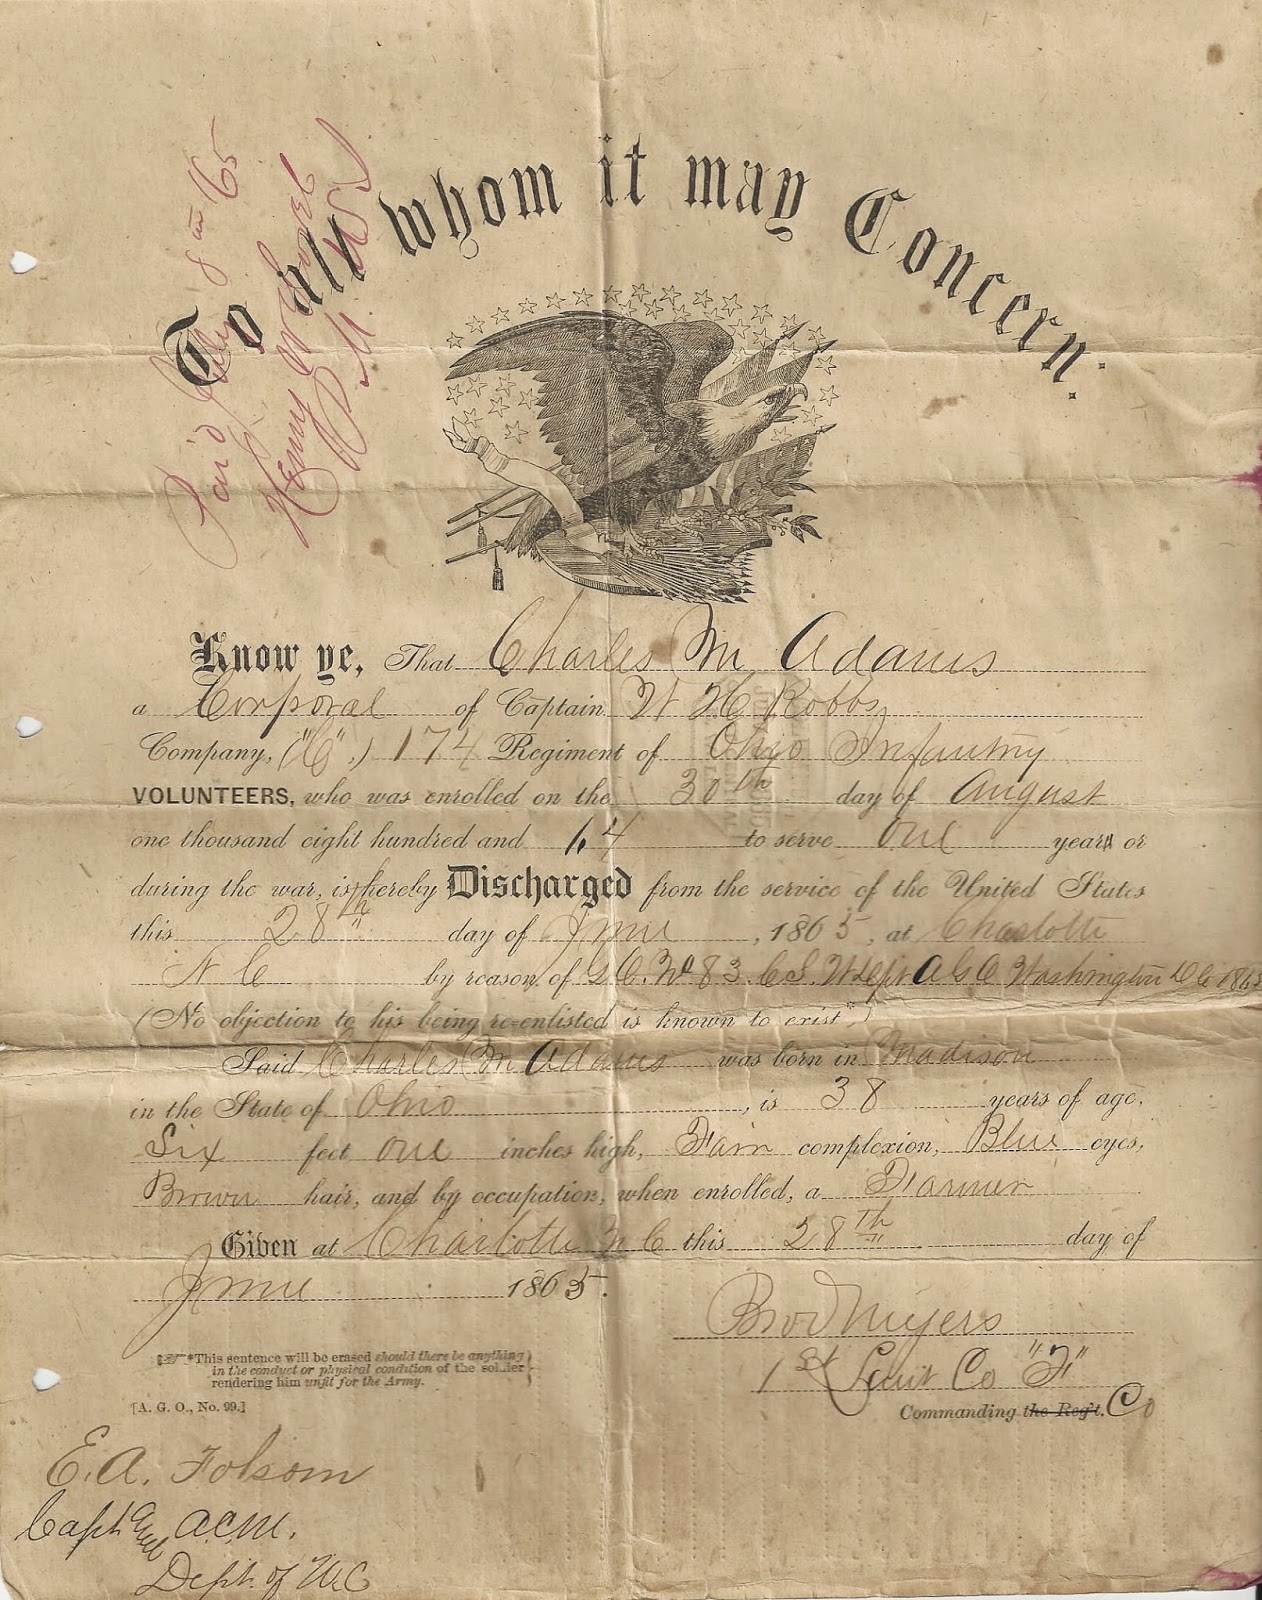 To all whom it may Concern:
Paid July 8th 65
Henry
P. M. USA
Know ye, That Charles M Adams
a Corporal of Captain W H Robbs
Company, ("C",) 174 Regiment of Ohio Infantry
VOLUNTEERS, who was enrolled on the 30th day of August
one thousand eight hundred and 64 to serve one years or
during the war, is hereby Discharged from the service of the United States
this 28th day of June, 1865, at Charlotte
N C by reason of G.O. No 83. C.S. W Dept A G O Washington D C 1865
(No objection to his being re-enlisted is known to exist*.)
Said Charles M Adams was born in Madison
in the State of Ohio, is 38 years of age,
Six feet one inches high, Fair complexion, Blue eyes,
Brown hair, and by occupation, when enrolled, a Farmer
Given at Charlotte N C this 28th day of
June 1865.
Myers
1st Lieut Co "F"
Commanding the Reg't. Co
*This sentence will be erased should there be anything
in the conduct or physical condition of the soldier
rendering him unfit for the Army.
[A. G. O., No. 99.]
E. A. Folsom
Capt A.C.M.
Dept. of N.C